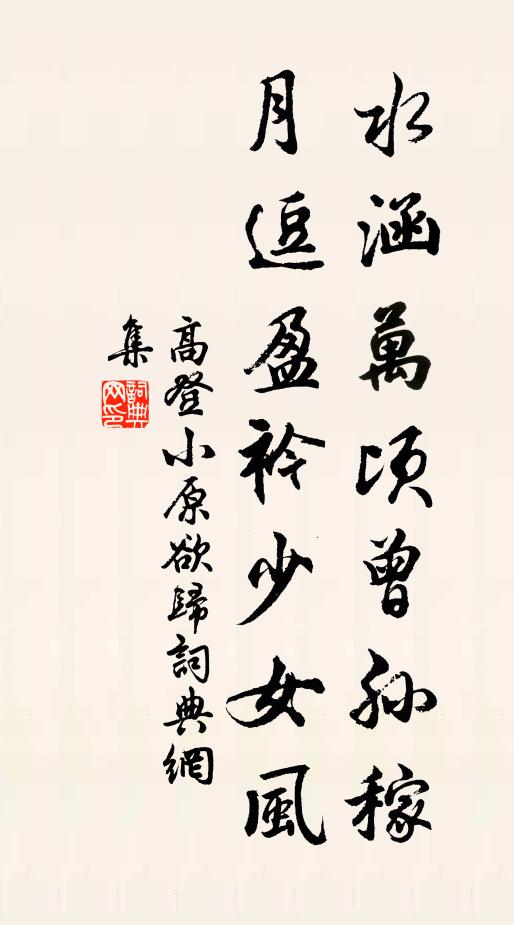 水涵萬頃曾孫稼
月逗盈衿少女風
高登小原欲歸詞典網
集
詞典
网印